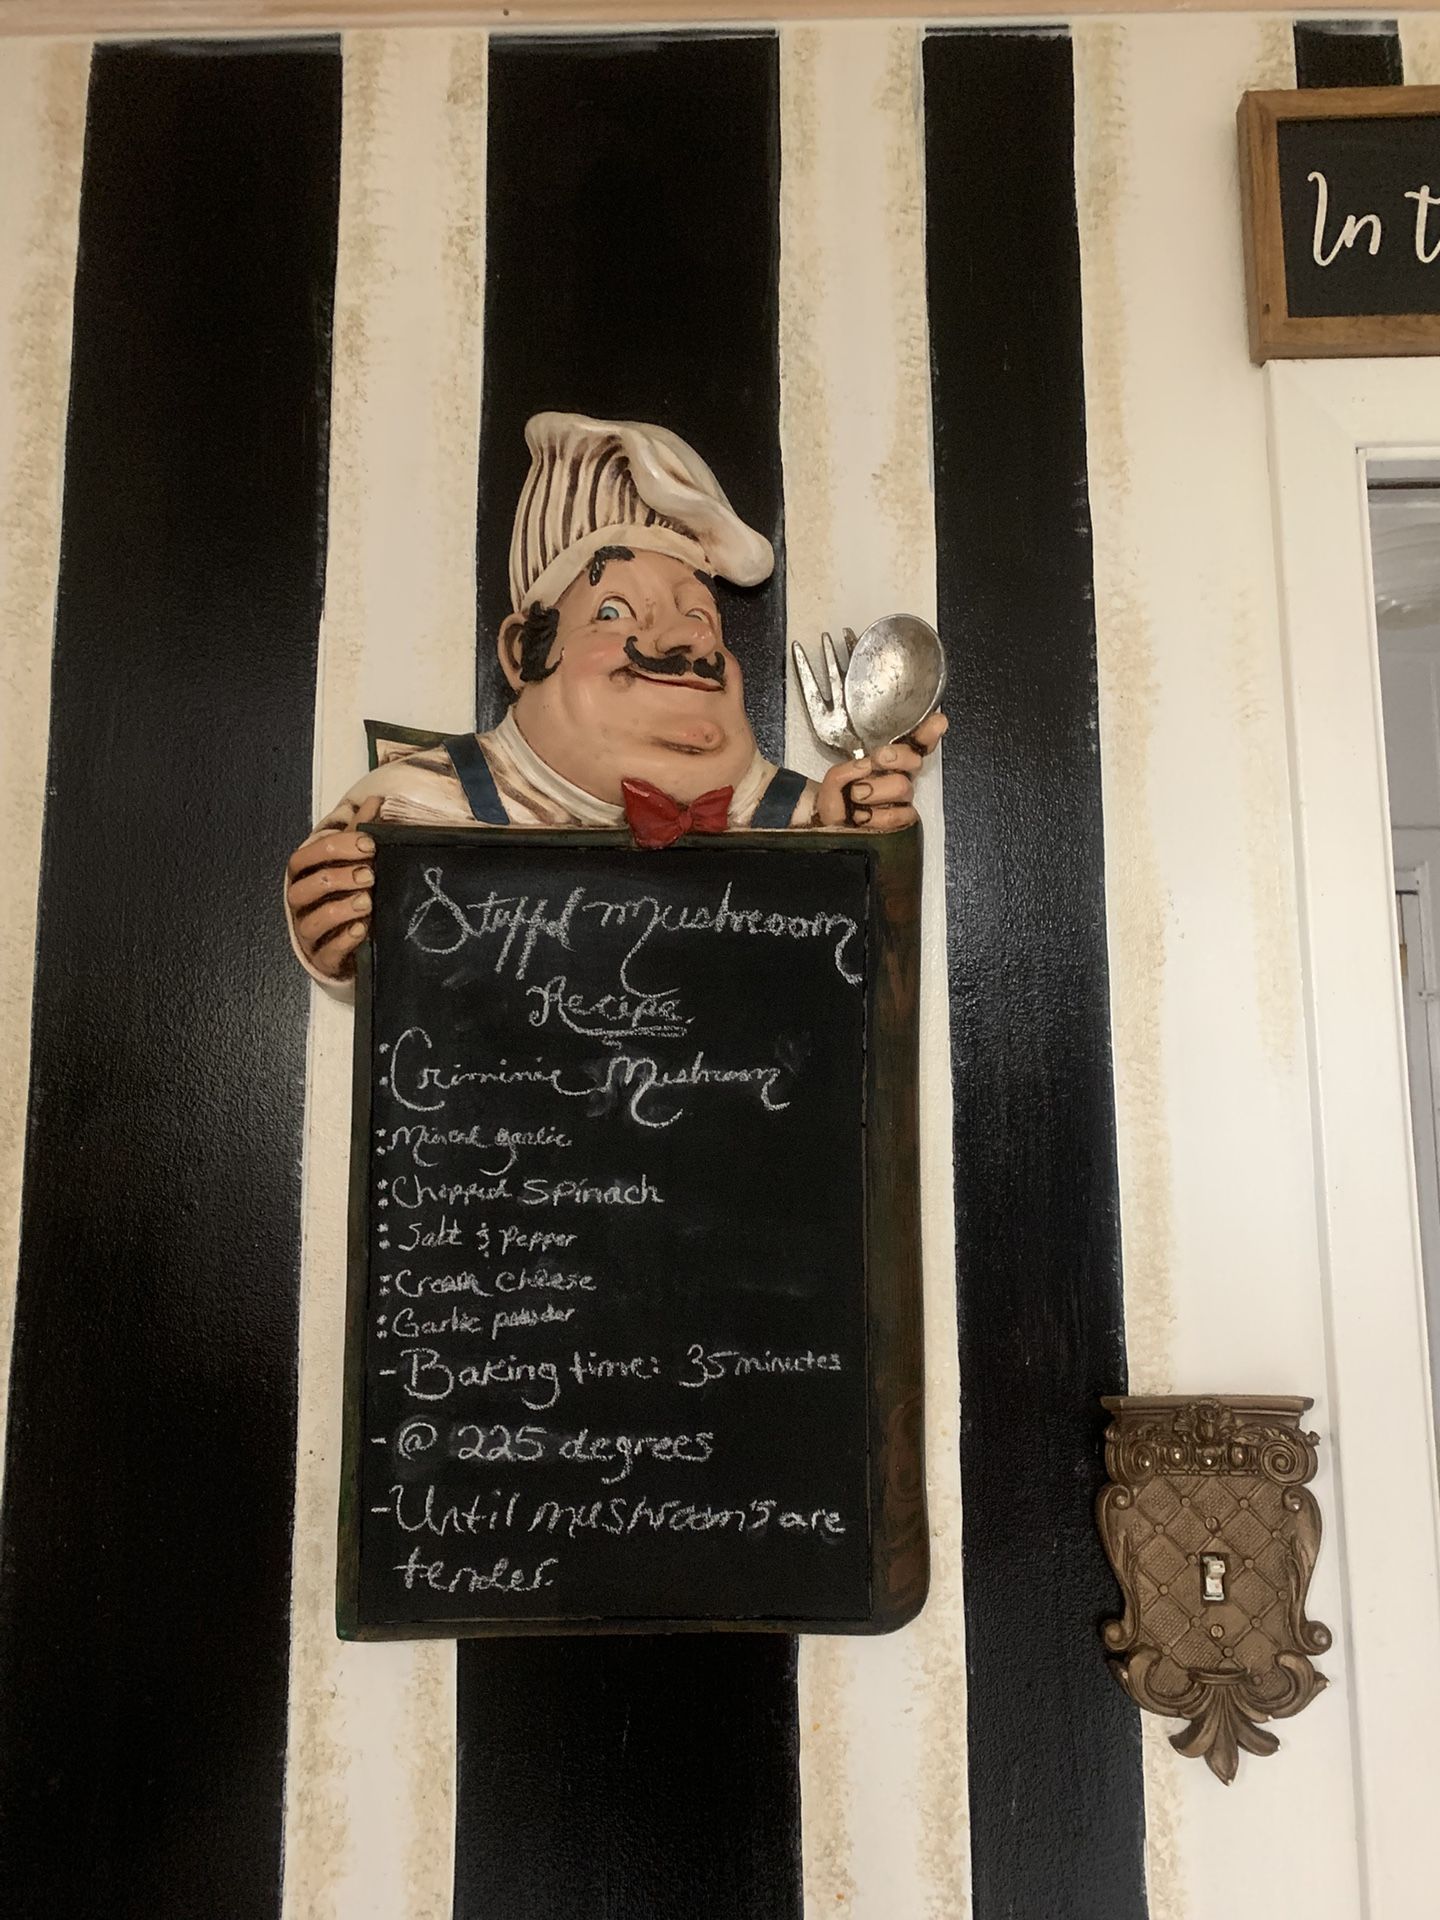 In t
Stuffed mushroom
Recipe
:Criminie Mushroom
:Minced garlic
:Chopped Spinach
:Salt & Pepper
:Cream cheese
:Garlic powder
-Baking time: 35 minutes
-@ 225 degrees
-Until mushroom's are
tender.